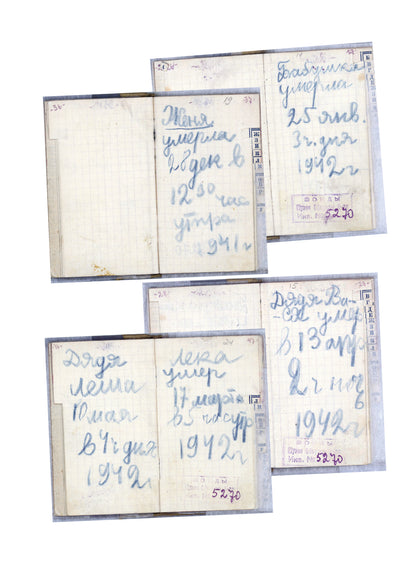 Бабушка
умерла
25 янв.
3 ч. дня
1942 г
ФОНДЫ
Инв. № 5270
Женя
умерла
28 дек в
12 30 час
утра
1941 г
Дядя Ва-
ся умер
в 13 апр
2 ч ноч
1942 г
Инв. № 5270
Дядя
Леша
10 мая
в 4 ч дня
1942 г
Лека
умер
17 марта
в 5 час утр
1942 г
ФОНДЫ
Инв. № 5270